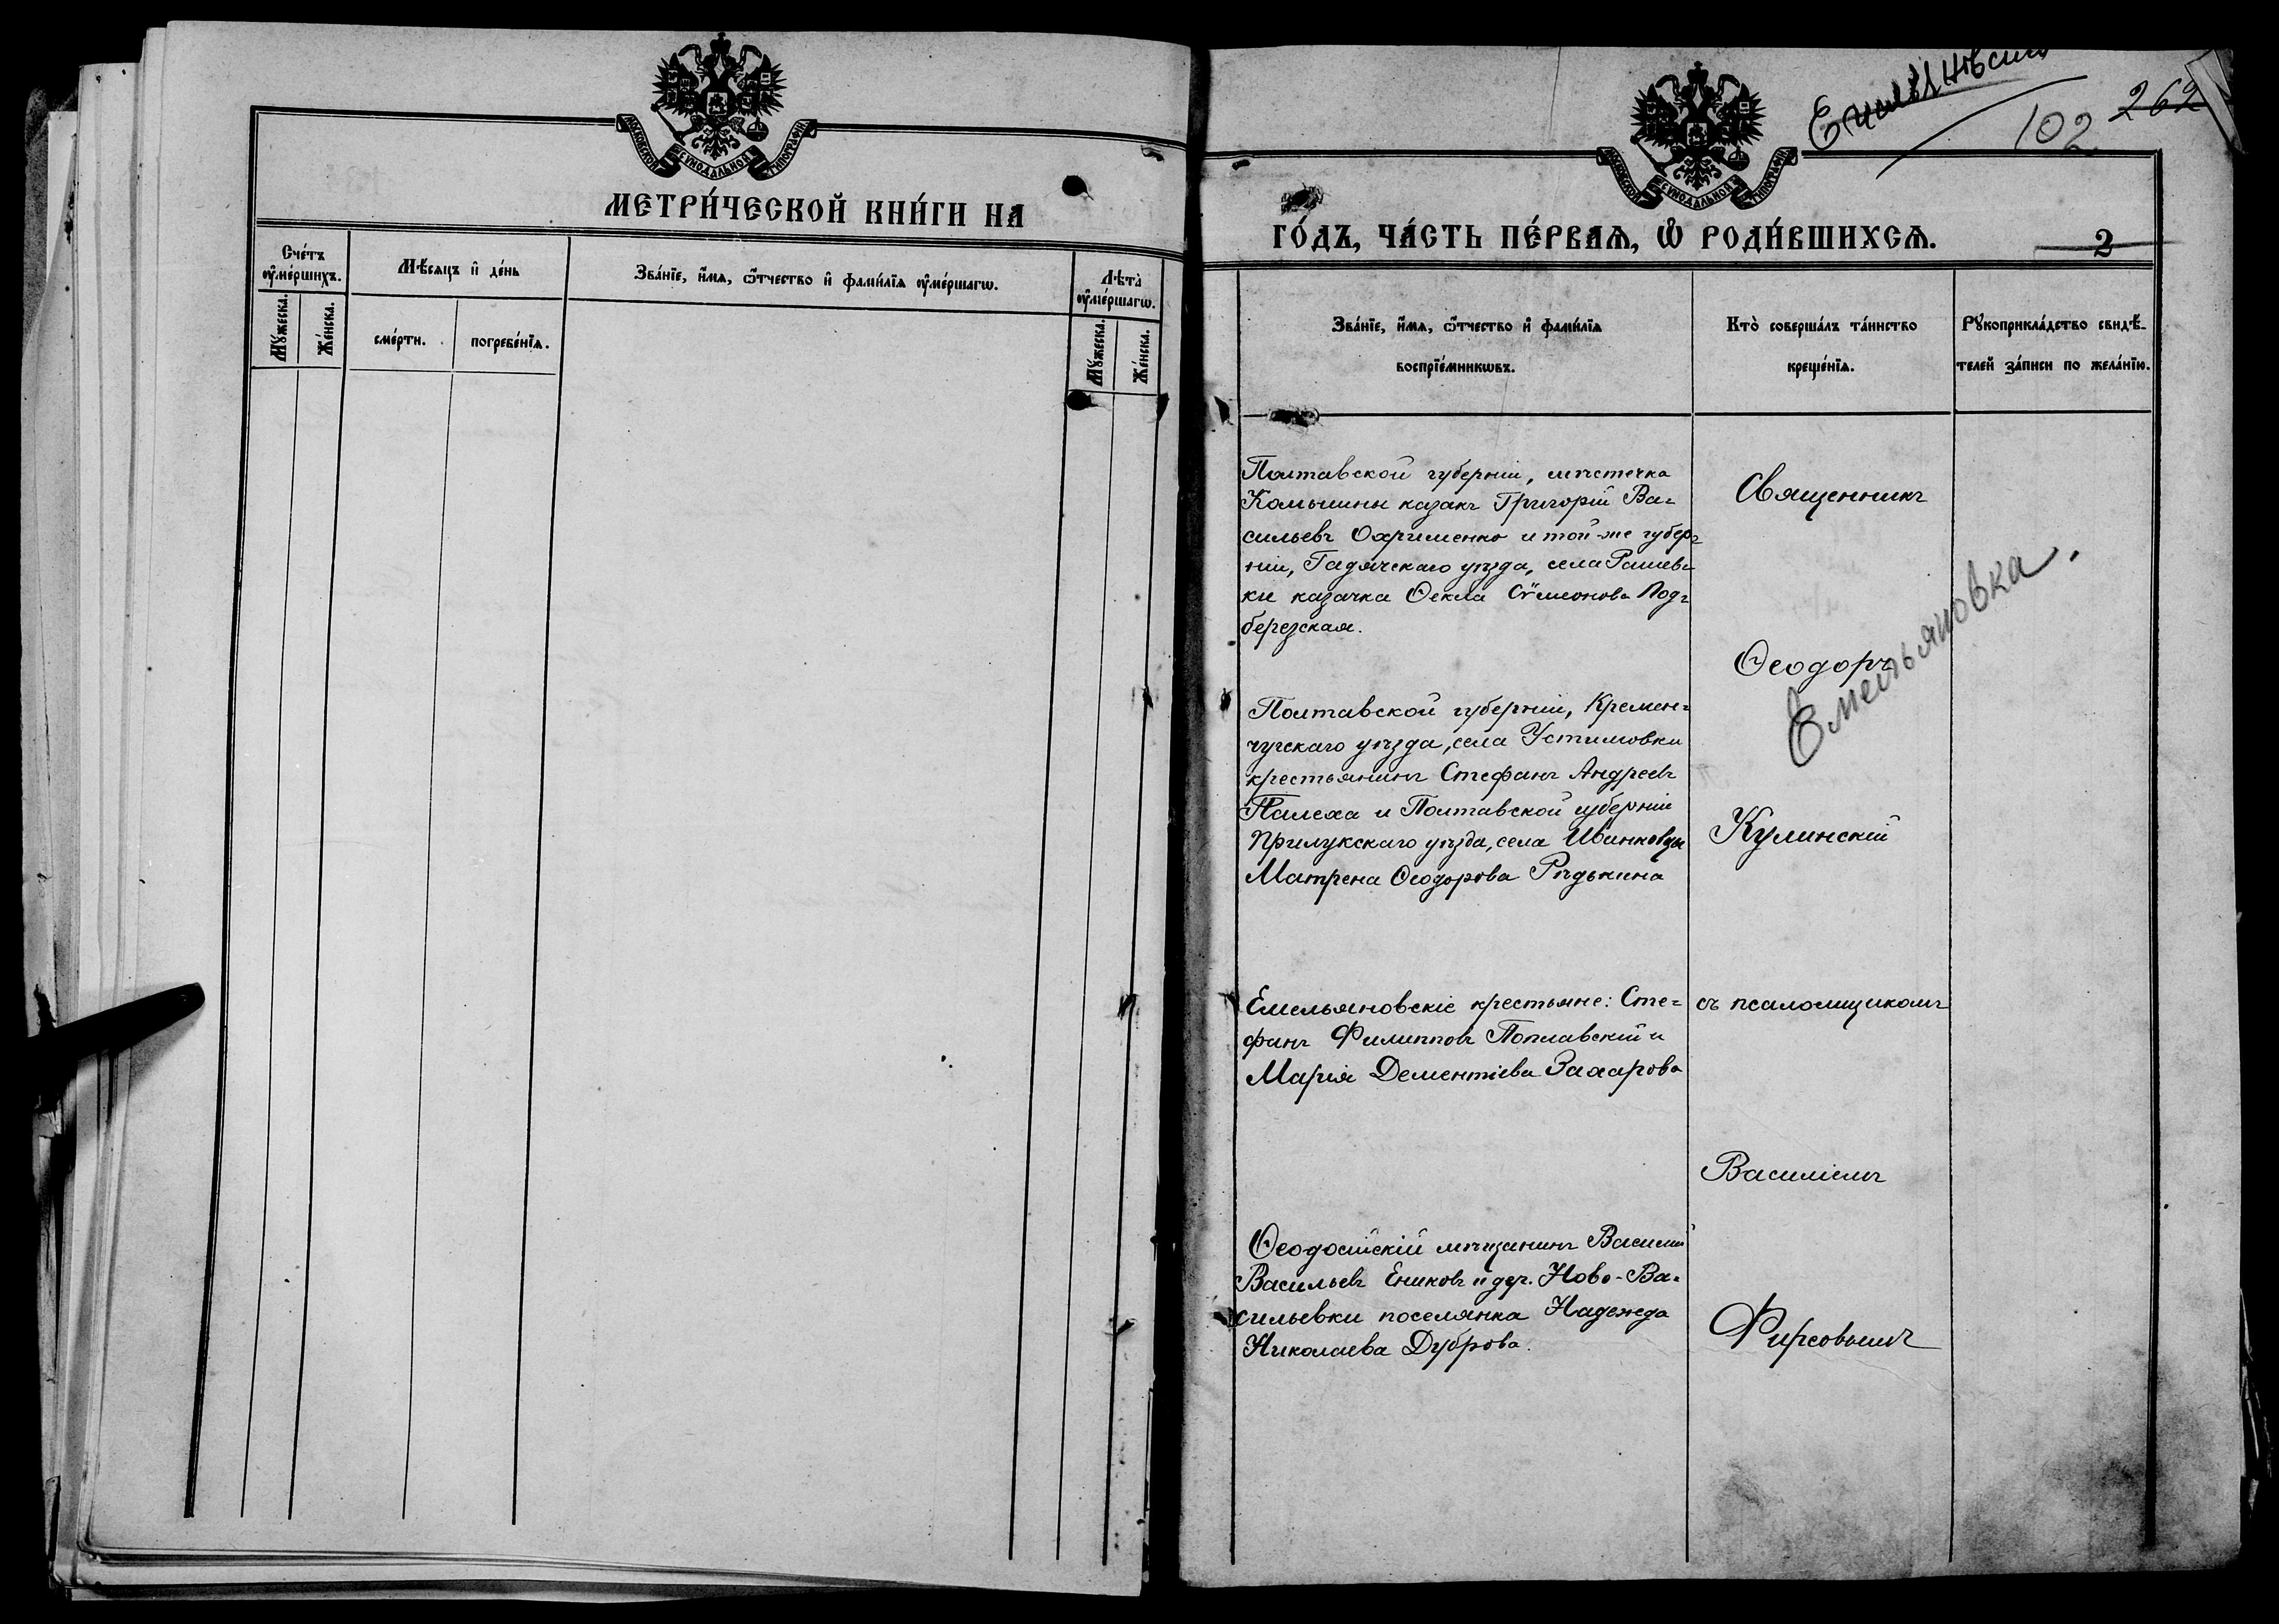 МОСКОВСКОЙ СѴНОДАЛЬНОЙ ТИПОГРАФІИ
МЕТРИ́ЧЕСКОЙ КНИ́ГИ НА
Сче́тъ
ᲂу҆ме́ршихъ.
Мꙋ́жеска.
Же́нска.
Мѣ́сяцъ и҆ де́нь
сме́рти.
погребе́нїѧ.
Зва́нїе, и҆́мѧ, ѻ҆́тчество и҆ фами́лїѧ ᲂу҆ме́ршагѡ.
Лѣта̀
ᲂу҆ме́ршагѡ.
Мꙋ́жеска.
Же́нска.
102
262
МОСКОВСКОЙ СѴНОДАЛЬНОЙ ТИПОГРАФІИ
ГО́ДЪ, ЧА́СТЬ ПЕ́РВАѦ, Ѡ҆ РОДИ́ВШИХСѦ.
2
Зва́нїе, и҆́мѧ, ѻ҆́тчество и҆ фами́лїѧ
воспрїе́мникѡвъ.
Кто̀ соверша́лъ та́инство
креще́нїѧ.
Рꙋкоприкла́дство свидѣ́-
телей за́писи по жела́нїю.
Полтавской губерніи, мѣстечка
Комышны казакъ Григорій Ва-
сильевъ Охрименко и той-же губер-
ніи, Гадячскаго уѣзда, села Рашев-
ки казачка Ѳекла Сѵмеонова Под-
березская.
Священникъ
Ѳеодоръ
Емельяновка.
Полтавской губерніи, Кремен-
чугскаго уѣзда, села Устимовки
крестьянинъ Стефанъ Андреевъ
Палеха и Полтавской губерніи
Прилукскаго уѣзда, села Иванковцы
Матрена Ѳеодорова Рѣдькина
Кулинскій
Емельяновскіе крестьяне: Сте-
фанъ Филипповъ Поплавскій и
Марія Дементіева Захарова
съ псаломщикомъ
Василіемъ
Ѳеодосійскій мѣщанинъ Василій
Васильевъ Ениковъ и дер. Ново-Ва-
сильевки поселянка Надежда
Николаева Дуброва.
Фирсовымъ